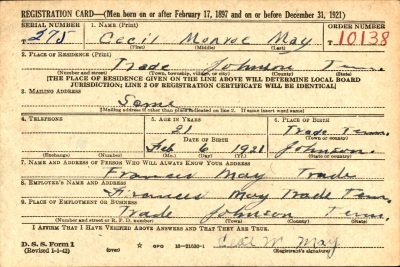 REGISTRATION CARD—(Men born on or after February 17, 1897 and on or before December 31, 1921)
SERIAL NUMBER 1. NAME (Print) ORDER NUMBER
T 275 Cecil Monroe May T 10138
(First) (Middle) (Last)
2. PLACE OF RESIDENCE (Print)
Trade Johnson Tenn.
(Number and street) (Town, township, village, or city) (County) (State)
[THE PLACE OF RESIDENCE GIVEN ON THE LINE ABOVE WILL DETERMINE LOCAL BOARD
JURISDICTION; LINE 2 OF REGISTRATION CERTIFICATE WILL BE IDENTICAL]
3. MAILING ADDRESS
Same
[Mailing address if other than place indicated on line 2. If same insert word same]
4. TELEPHONE 5. AGE IN YEARS 6. PLACE OF BIRTH
21 Trade Tenn.
DATE OF BIRTH (Town or county)
Feb 6 1921 Johnson.
(Exchange) (Number) (Mo.) (Day) (Yr.) (State or country)
7. NAME AND ADDRESS OF PERSON WHO WILL ALWAYS KNOW YOUR ADDRESS
Frances May Trade
8. EMPLOYER'S NAME AND ADDRESS
Frances May Trade Tenn
9. PLACE OF EMPLOYMENT OR BUSINESS
Trade Johnson Tenn.
(Number and street or R. F. D. number) (Town) (County) (State)
I AFFIRM THAT I HAVE VERIFIED ABOVE ANSWERS AND THAT THEY ARE TRUE.
D. S. S. Form 1 GPO 16—21630-1 Cecil M. May
(Revised 1-1-42) (over) (Registrant's signature)